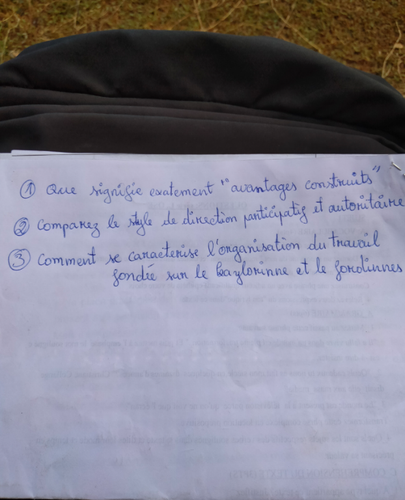 ① Que signifie exatement "avantages construits"
② Comparez le style de direction participatif et autoritaire
③ Comment se caracterise l'organisation du travail
fondée sur le taylorinne et le fordinnes